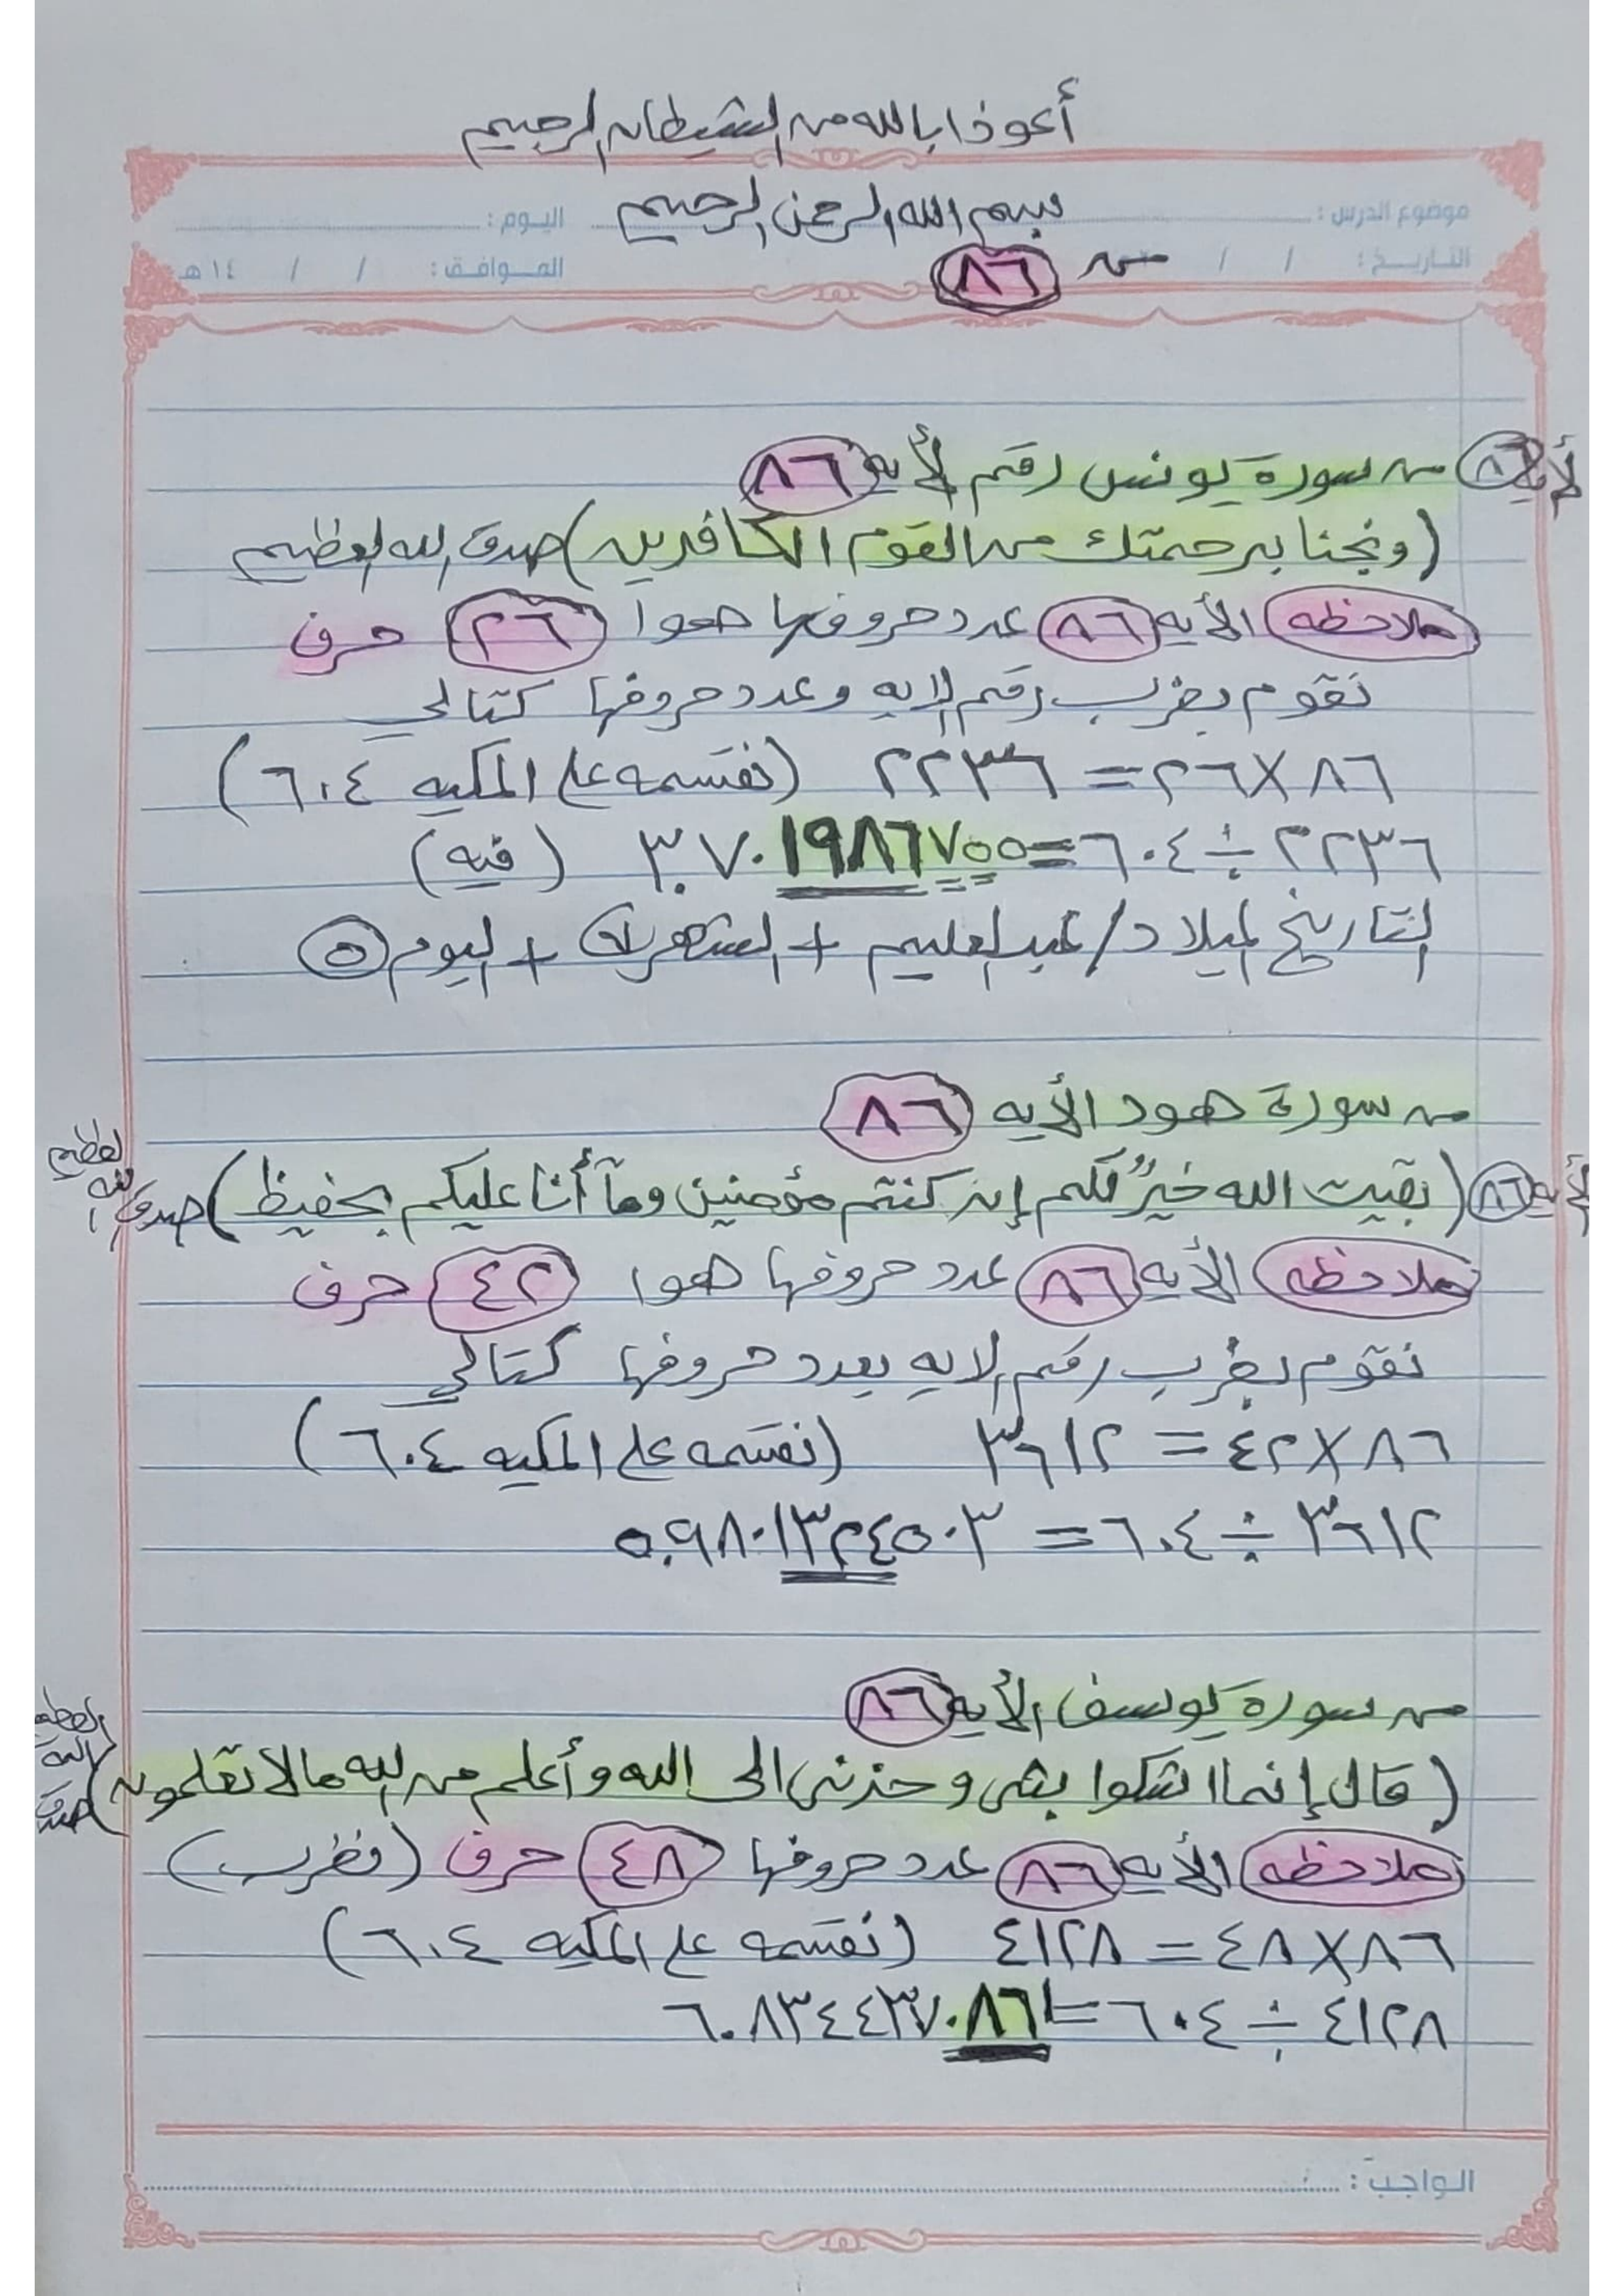 أعوذ بالله من الشيطان الرجيم
بسم الله الرحمن الرحيم
موضوع الدرس : اليوم :
التاريخ : / / الموافق : / / ١٤ هـ
من ٨٦
الأيه ٨٦ من سورة يونس رقم الأيه ٨٦
(ونجنا برحمتك من القوم الكافرين) صدق الله العظيم
ملاحظه الأيه ٨٦ عدد حروفها هوا ٢٦ حرف
نقوم بضرب رقم الايه وعدد حروفها كتالي
٨٦ × ٢٦ = ٢٢٣٦ (نقسمه على المكيه ٦٠٤)
٢٢٣٦ ÷ ٦٠٤ = ٣.٧٠١٩٨٦٧٥٥ (فيه)
التاريخ لميلاد / عبدالعليم + الشهر ٧ + اليوم ٥
من سورة هود الأيه ٨٦
الأيه ٨٦ (بقيت الله خيرٌ لكم إن كنتم مؤمنين ومآ أنا عليكم بحفيظ) صدق الله العظيم
ملاحظه الأيه ٨٦ عدد حروفها هوا ٤٢ حرف
نقوم بضرب رقم الايه بعدد حروفها كتالي
٨٦ × ٤٢ = ٣٦١٢ (نقسمه على المكيه ٦٠٤)
٣٦١٢ ÷ ٦٠٤ = ٥.٩٨٠١٣٢٤٥٠٣
من سورة يوسف الأيه ٨٦
(قال إنما اشكوا بثى وحزنى الى الله وأعلم من الله مالا تعلمون) صدق الله العظيم
ملاحظه الأيه ٨٦ عدد حروفها ٤٨ حرف (نضرب)
٨٦ × ٤٨ = ٤١٢٨ (نقسمه على المكيه ٦٠٤)
٤١٢٨ ÷ ٦٠٤ = ٦.٨٣٤٤٣٧٠٨٦١
الواجب :